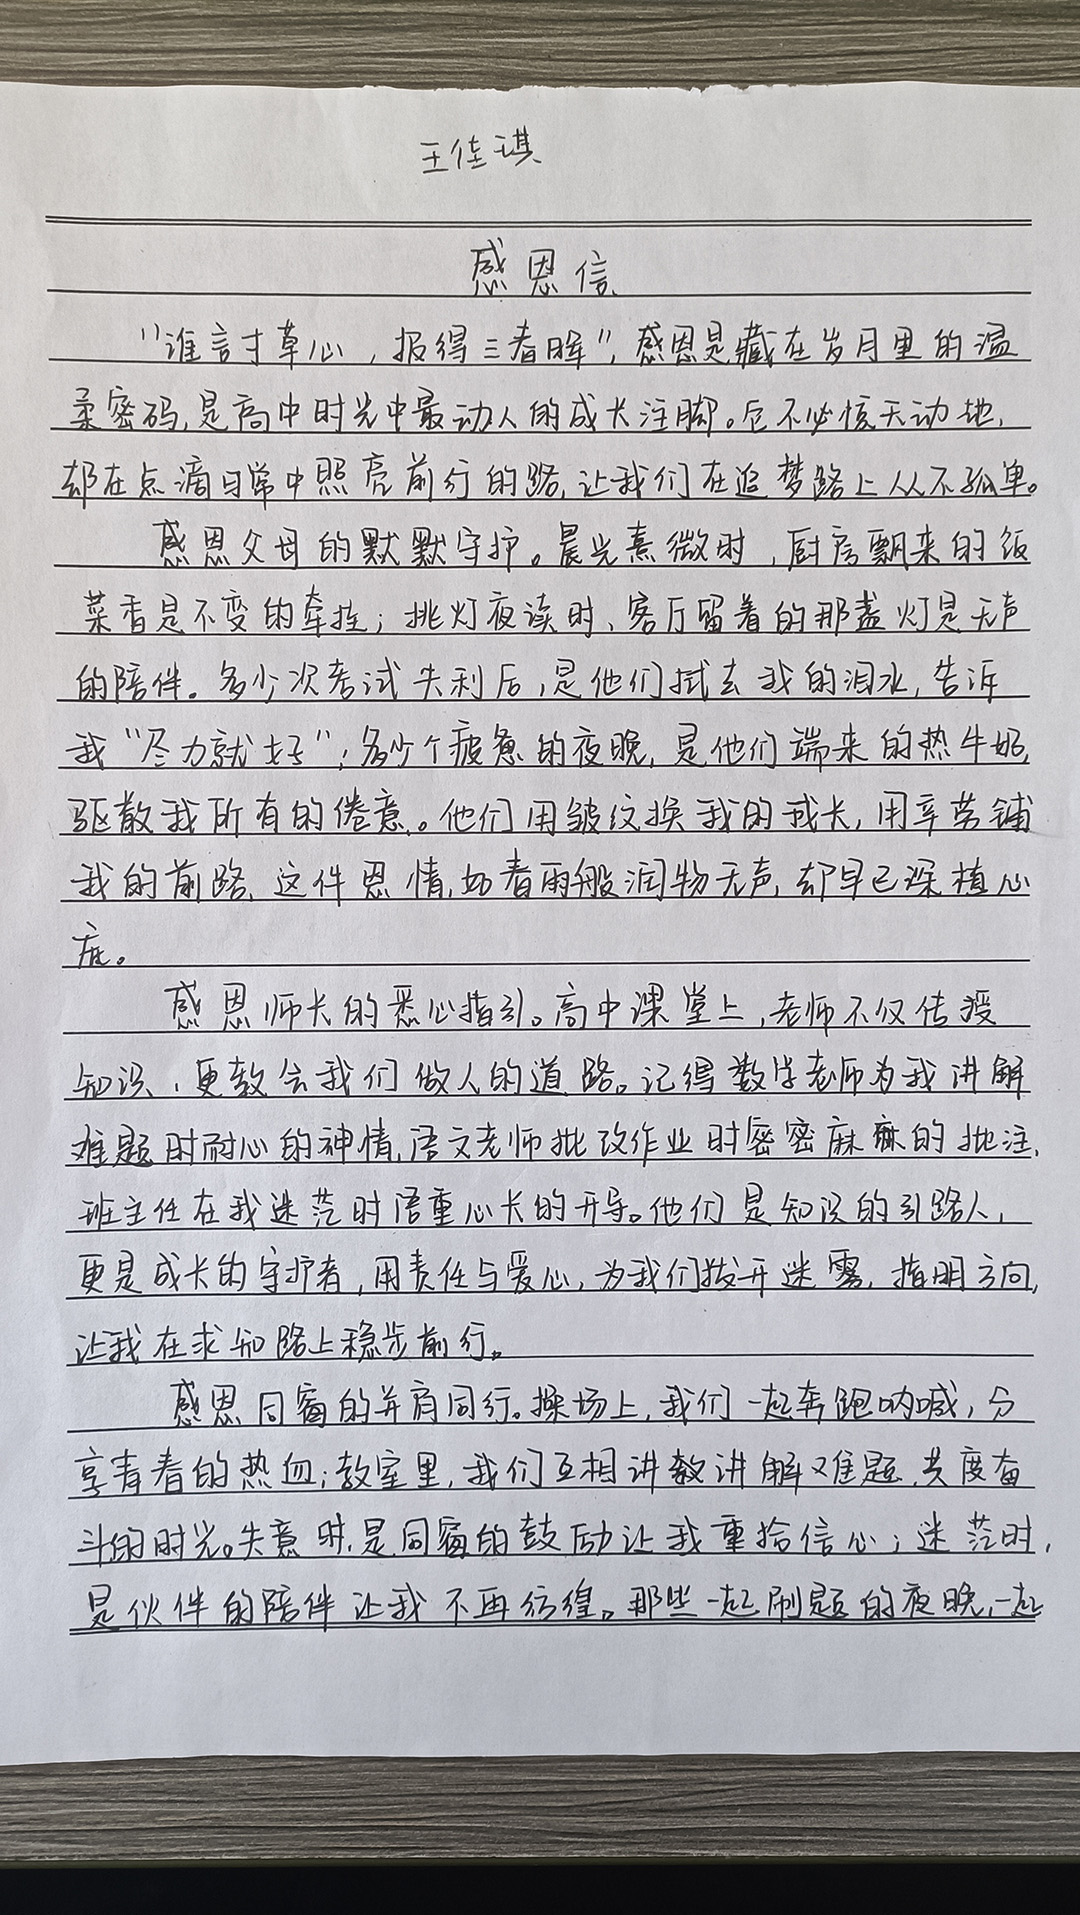 王佳琪
感恩信
“谁言寸草心，报得三春晖”，感恩是藏在岁月里的温
柔密码，是高中时光中最动人的成长注脚。它不必惊天动地，
却在点滴日常中照亮前行的路，让我们在追梦路上从不孤单。
感恩父母的默默守护。晨光熹微时，厨房飘来的饭
菜香是不变的牵挂；挑灯夜读时、客厅留着的那盏灯是无声
的陪伴。多少次考试失利后，是他们拭去我的泪水，告诉
我“尽力就好”；多少个疲惫的夜晚，是他们端来的热牛奶，
驱散我所有的倦意。他们用皱纹换我的成长，用辛劳铺
我的前路，这件恩情，如春雨般润物无声，却早已深植心
底。
感恩师长的悉心指引。高中课堂上，老师不仅传授
知识，更教会我们做人的道路。记得数学老师为我讲解
难题时耐心的神情，语文老师批改作业时密密麻麻的批注，
班主任在我迷茫时语重心长的开导。他们是知识的引路人，
更是成长的守护者，用责任与爱心，为我们拨开迷雾，指明方向，
让我在求知路上稳步前行。
感恩同窗的并肩同行。操场上，我们一起奔跑呐喊，分
享青春的热血；教室里，我们互相讲数讲解难题，共度奋
斗的时光。失意时，是同窗的鼓励让我重拾信心；迷茫时，
是伙伴的陪伴让我不再彷徨。那些一起刷题的夜晚，一起